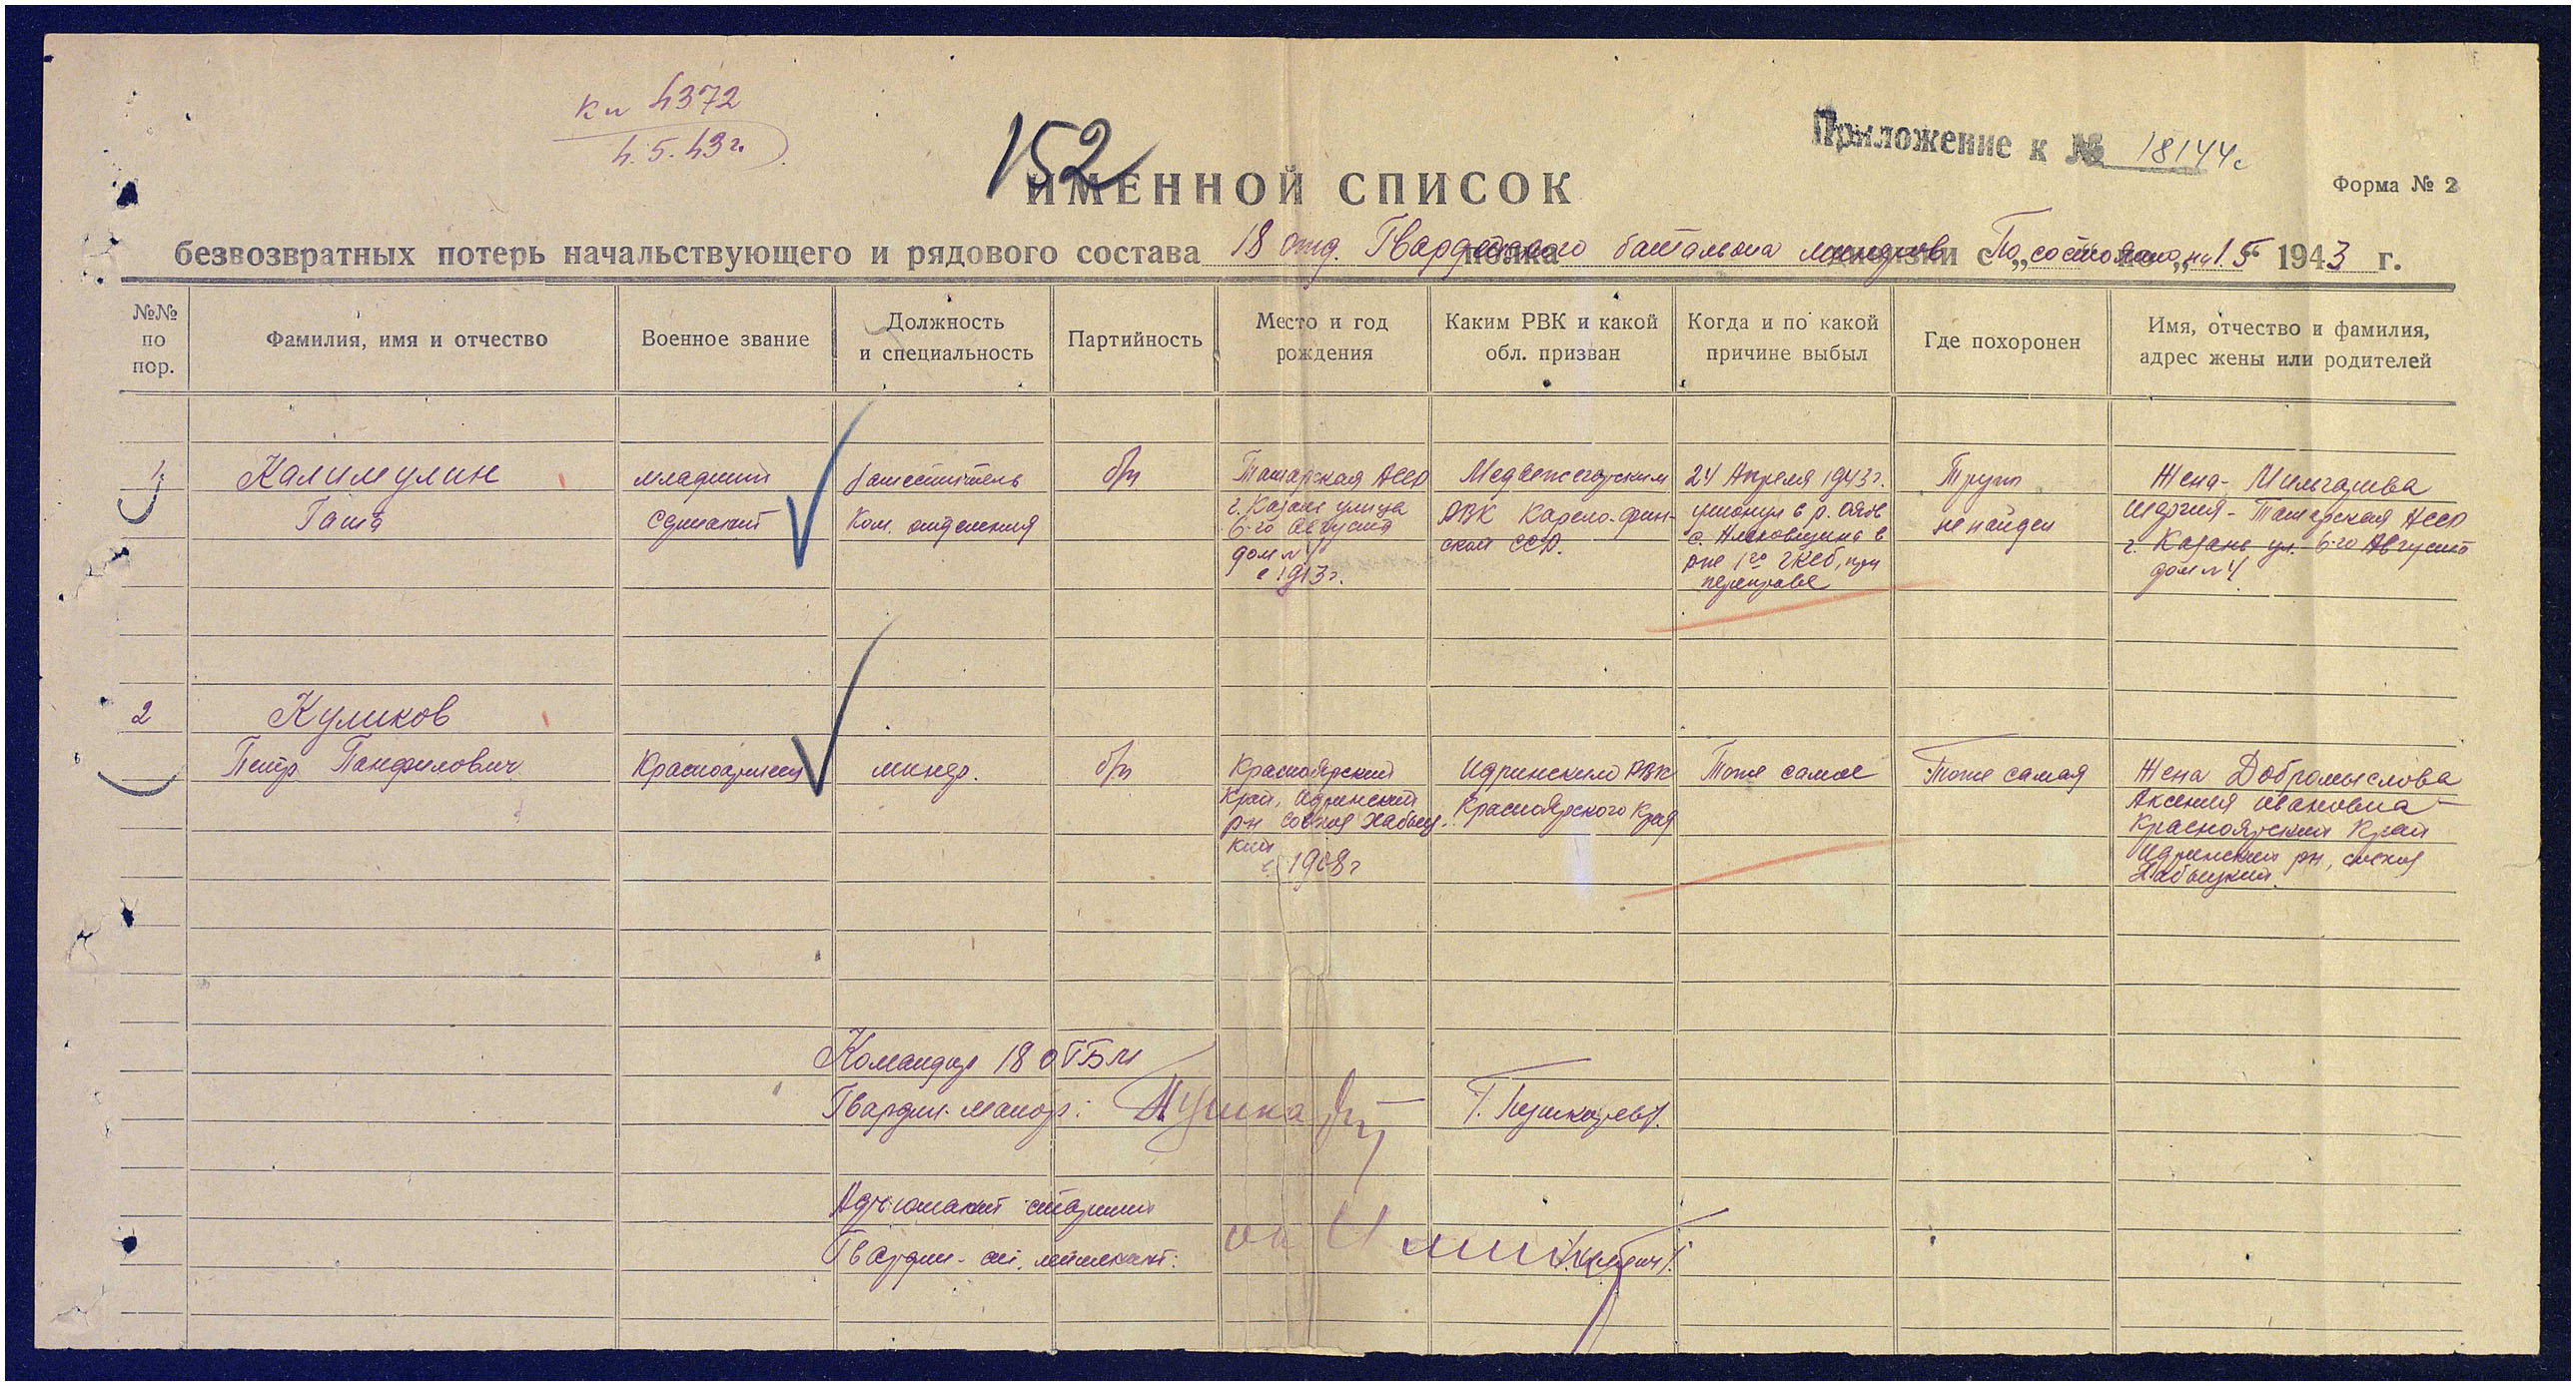 кл 4372
4.5.43г.
152
Приложение к № 18144с
ИМЕННОЙ СПИСОК
Форма № 2
безвозвратных потерь начальствующего и рядового состава 18 отд. Гвардейского батальона минеров По состоянию на 1.5 1943 г.
№№ по пор.
Фамилия, имя и отчество
Военное звание
Должность и специальность
Партийность
Место и год рождения
Каким РВК и какой обл. призван
Когда и по какой причине выбыл
Где похоронен
Имя, отчество и фамилия, адрес жены или родителей
1.
Калимулин
Гата
младший
сержант
Заместитель
Ком. отделения
б/п
Татарская АССР
г. Казань улица
6-го Августа
дом №4
с 1913г.
Медвежегорским
РВК Карело-фин-
ской ССР.
24 Апреля 1943г.
утонул в р. Оять
с. Алеховщина в
р-не 1го при
переправе
Труп
не найден
Жена-
Татарская АССР
г. Казань ул. 6-го Августа
дом №4
2
Куликов
Петр Панфилович
Красноармеец
минер.
б/п
Красноярский
Край, Идринский
рн совхоз Хабыц
кий
с 1908г
Идринским РВК
Красноярского Края
Тоже самое
Тоже самая
Жена Добромыслова
Аксения Ивановна-
Красноярский Край
Идринский рн, совхоз
Хабыцкий.
Командир 18 ОГБМ
Гвардии-майор:
/Г. Пушкарев/.
Адъютант старший
Гвардии-ст. лейтенант: